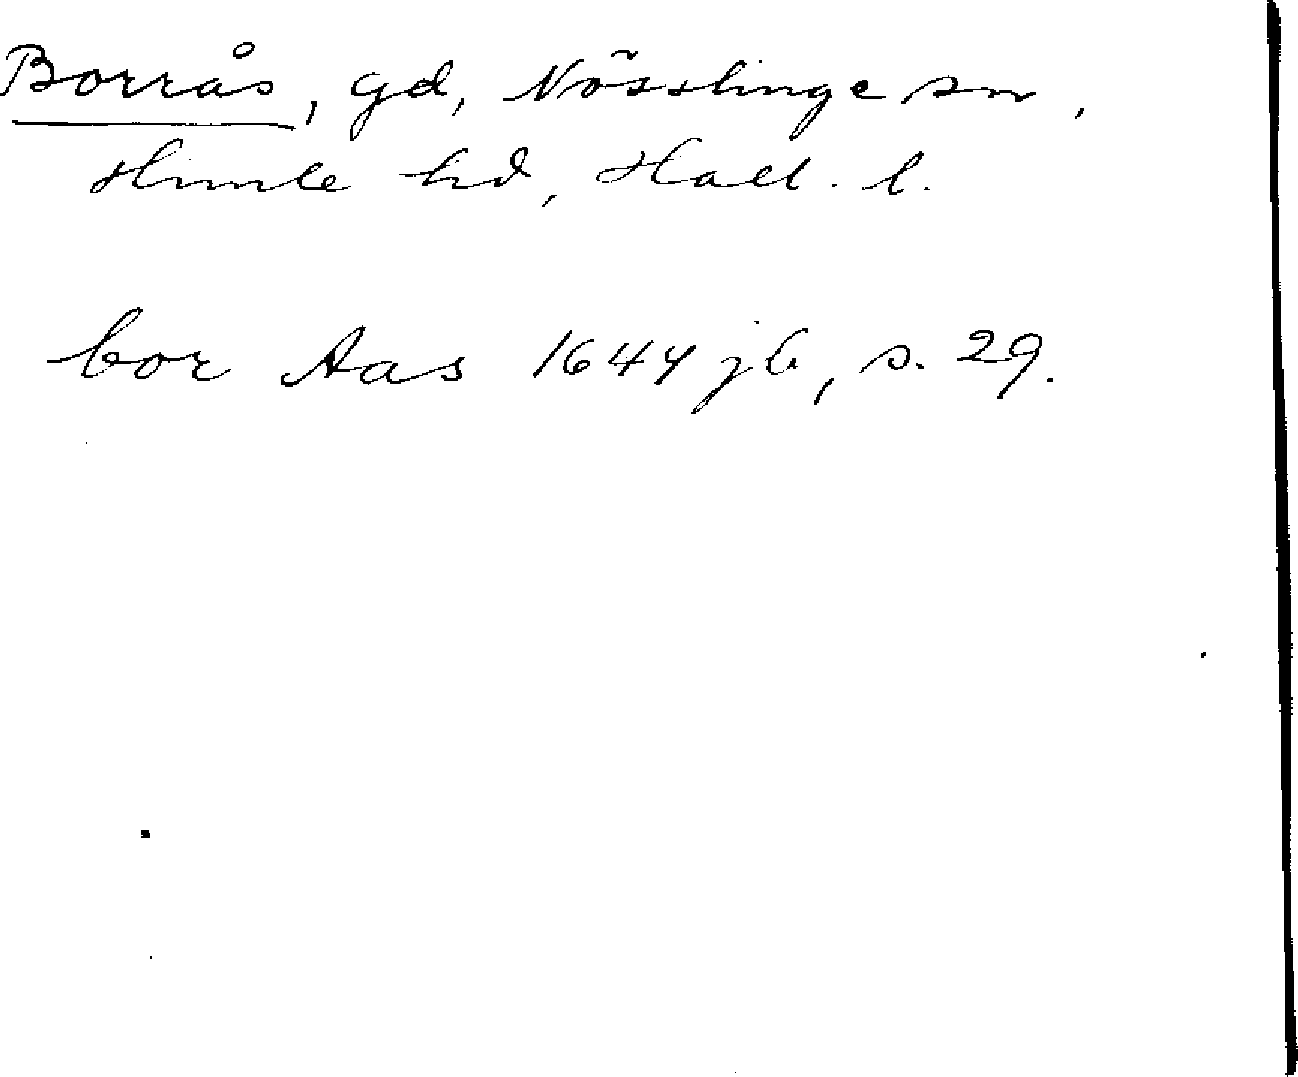 Borrås, gd, Nösslinge sn,
Himle hd, Hall. l.
bor Aas 1644 jb, s. 29.